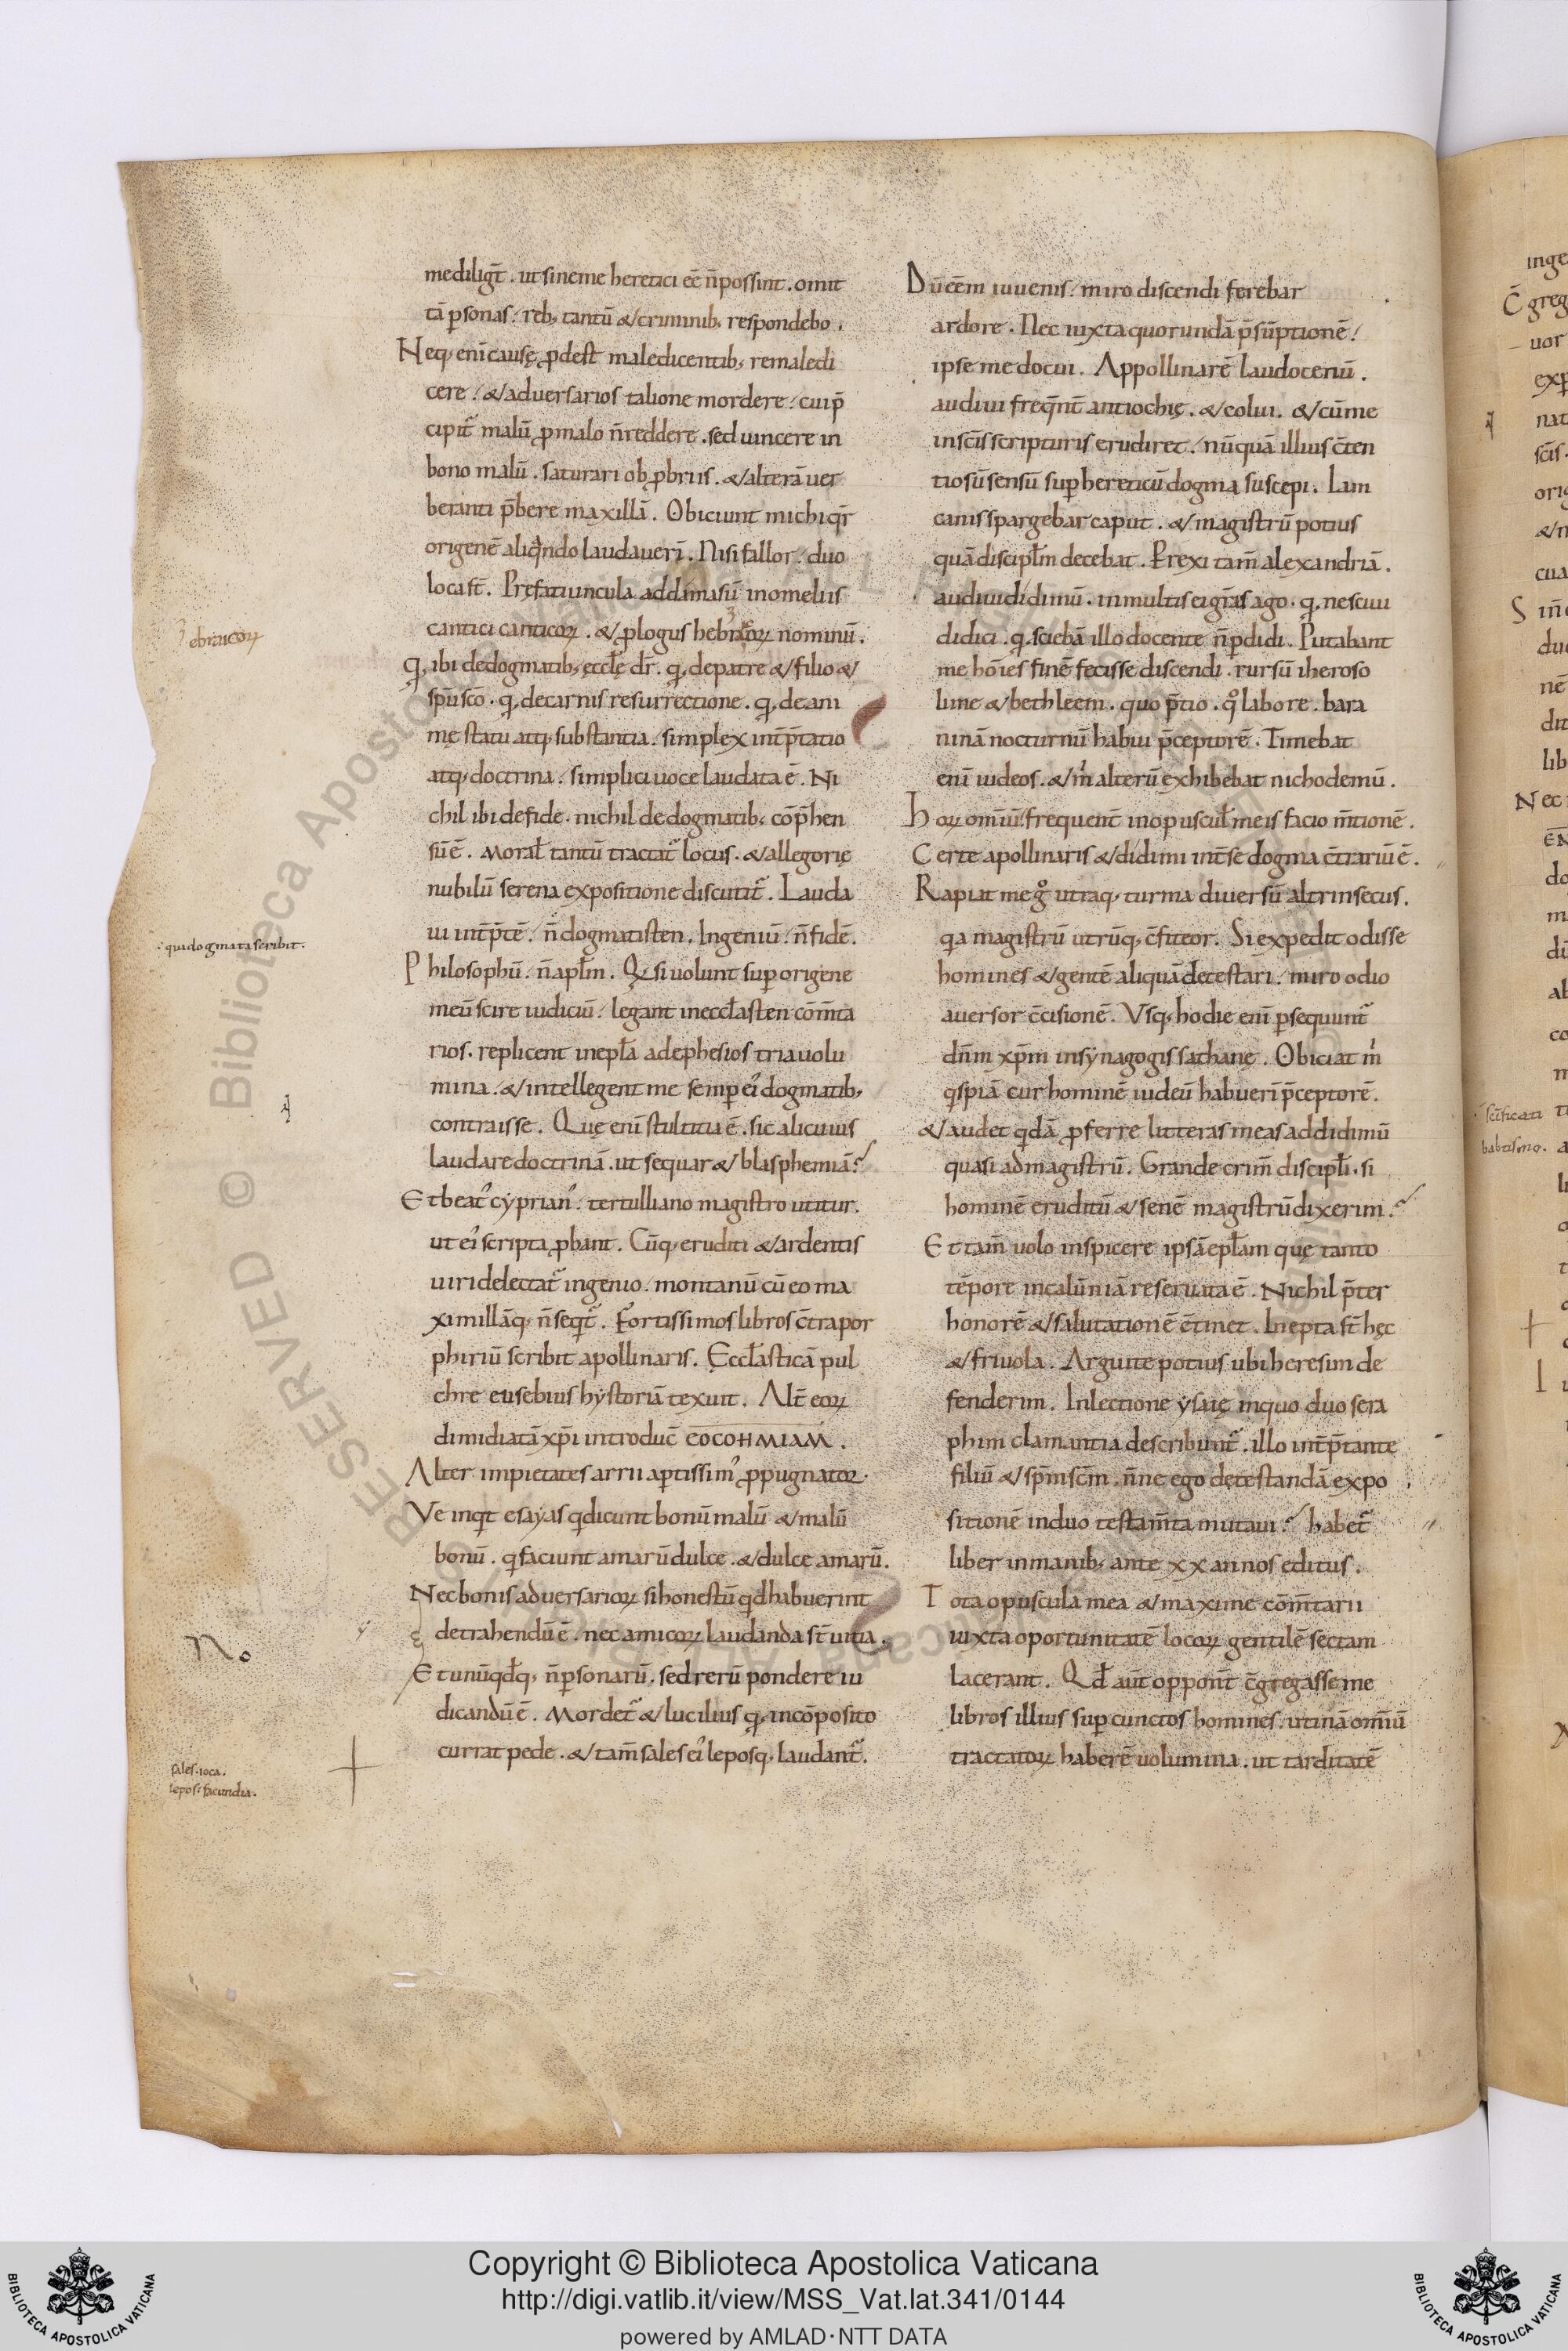 mediligt̄ . ut sineme heretici eē n̄ possint . omit
tā ꝑsonas / reb; tantū & criminib; respondebo .
Neq; eni causę ꝓdest maledicentib; remaledi
cere / & adversarios talione mordere / cui p̄
cipit̄ malū ꝓ malo n̄ reddere . sed vincere in
bono malū . saturari obꝓbriis . & alterā ver
beranti p̄bere maxillā . Obiciunt michi qr̄
origenē aliqndo laudaueri . Nisi fallor / duo
loca st̄ . Prefatiuncula ad damasū inomeliis
cantici canticoꝝ . & ꝓlogus hebraicoꝝ nominū .
ebraicoꝝ
q; ibi dedogmatib; eccłę dr̄ . q; depatre & filio &
spū scō . q; decarnis resurrectione . q; deani
mę statu atq; substantia . simplex int̄p̄tatio
atq; doctrina . simplici uoce laudata ē . Ni
chil ibi defide . nichil de dogmatib; cōp̄hen
sū ē . Morał tantū tractat̄ locus . & allegorię
nubilū serena expositione discutit̄ . Lauda
ui int̄p̄tē / n̄ dogmatisten . Ingeniū / n̄ fidē .
qui adogmata scribit .
Philosophū / n̄ apłm . Qd si uolunt sup origene
meū scire iudiciū / legant inecclasten cōm̄ta
rios . replicent inepła adephesios tria uolu
mina . & intellegent me semꝑ ei dogmatib;
contraisse . Quę eni stultitia ē . sic alicuius
laudare doctrinā . ut sequar & blasphemiā ?
Et beat᾽ cyprian᾽ . tertulliano magistro utitur .
ut ei scripta ꝓbant . Cūq; eruditi & ardentis
uiri delectat̄ ingenio / montanū cū eo ma
ximillāq; n̄ seqt̄ . Fortissimos libros c̄tra por
phiriū scribit apollinaris . Ecclasticā pul
chre eusebius hystoriā texuit . Alt̄ eoꝝ
dimidiatā xpi introduc̄ ЄOCOHMIAM .
Alter impietates arrii aptissim᾽ ꝓpugnator .
Ve inqt esayas qdicunt bonū malū & malū
bonū . q faciunt amarū dulce . & dulce amarū .
Nec bonis adversarioꝝ si honestū qd habuerint
detrahendū ē . nec amicoꝝ laudanda st̄ uitia .
No
Et unūqdq; n̄ ꝑsonarū . sed rerū pondere iu
dicandū ē . Mordet̄ & lucilius q; incōposito
currat pede . & tam̄ sales ei leposq; laudant̄ .
sales . ioca .
lepos . facundia .
Dū eēm iuuenis / miro discendi ferebar
ardore . Nec iuxta quorundā p̄sūptionē /
ipse me docui . Appollinarē laudoceriū .
audiui freqnt̄ antiochię . & colui . & cū me
inscīs scripturis erudiret / nūquā illius c̄ten
tiosū sensū suꝑ hereticū dogma suscepi . Iam
canis spargebar caput . & magistrū potius
quā discipłm decebat . Ꝑrexi tam̄ alexandriā .
audiui didimū . inmultis ei gr̄as ago . q; nesciui
didici . q; sciebā illo docente n̄ ꝑdidi . Putabant
me hōies finē fecisse discendi . rursū iheroso
lime & bethleem . quo p̄tio . qo labore . bara
ninā nocturnū habui p̄ceptorē . Timebat
eni iudeos . & m alterū exhibebat nichodemū .
Hoꝝ omiū frequent̄ inopusculł meis facio m̄tionē .
Certe apollinaris & didimi int̄ se dogma c̄trariū ē .
Rapiat me go utraq; turma diuersū altrinsecus .
qa magistrū utrūq; c̄fiteor . Si expedit odisse
homines & gentē aliquā detestari / miro odio
auersor c̄cisionē . Vsq; hodie eni ꝑsequunt̄
dn̄m xp̄m in synagogis sathanę . Obiciat m
qspiā cur hominē iudeū habueri p̄ceptorē .
& audet qdā ꝓferre litteras meas ad didimū
quasi admagistrū . Grande crim̄ discipłi . si
hominē eruditū & senē magistrū dixerim ?
Et tam̄ uolo inspicere ipsā epłam que tanto
tēpore incalūniā reseruata ē . Nichil p̄ter
honorē & salutationē c̄tinet . Inepta st̄ hęc
& friuola . Arguite potius ubi heresim de
fenderim . Inlectione ysaię inquo duo sera
phim clamantia describunt̄ . illo int̄p̄tante
filiū & sp̄m sc̄m . n̄ne ego detestandā expo
sitionē induo testam̄ta mutaui ? habet̄
liber in manib; ante xx annos editus .
Tota opuscula mea & maxime cōm̄tarii
iuxta oportunitatē locoꝝ gentilē sectam
lacerant . Qd aut̄ opponit̄ c̄gregasse me
libros illius suꝑ cunctos homines . utinā omiū
tractatoꝝ haberē uolumina . ut tarditatē
sc̄ificati
babtismo .
Copyright © Biblioteca Apostolica Vaticana
http://digi.vatlib.it/view/MSS_Vat.lat.341/0144
powered by AMLAD·NTT DATA
BIBLIOTECA APOSTOLICA VATICANA
BIBLIOTECA APOSTOLICA VATICANA